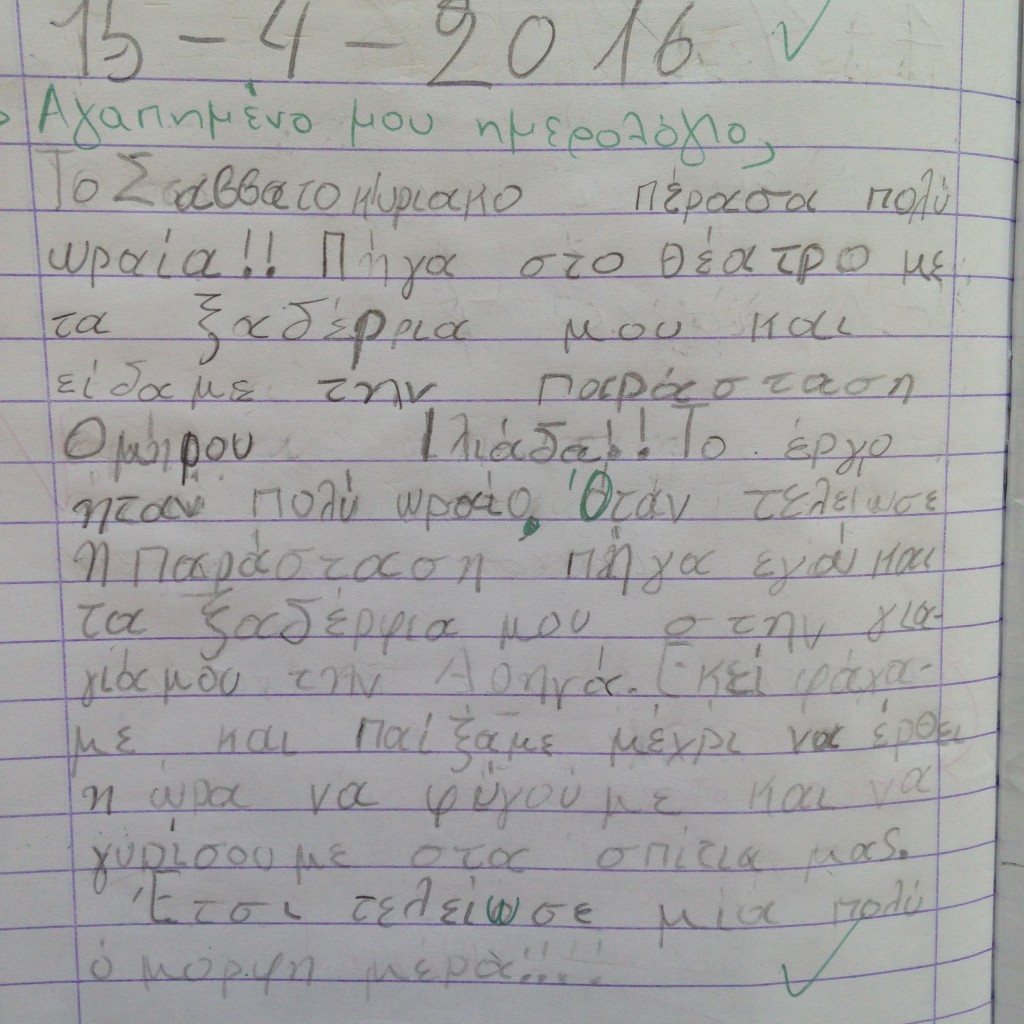 15-4-2016
Αγαπημένο μου ημερολόγιο,
Το Σαββατοκύριακο πέρασα πολύ
ωραία!! Πήγα στο θέατρο με
τα ξαδέρφια μου και
είδαμε την παράσταση
Ομήρου Ιλιάδα!! Το έργο
ήταν πολύ ωραίο. Όταν τελείωσε
η παράσταση πήγα εγώ και
τα ξαδέρφια μου στην για-
γιά μου την Αθηνά. Εκεί φάγα-
με και παίξαμε μέχρι να έρθει
η ώρα να φύγουμε και να
γυρίσουμε στα σπίτια μας.
Έτσι τελείωσε μία πολύ
όμορφη μέρα!!!!